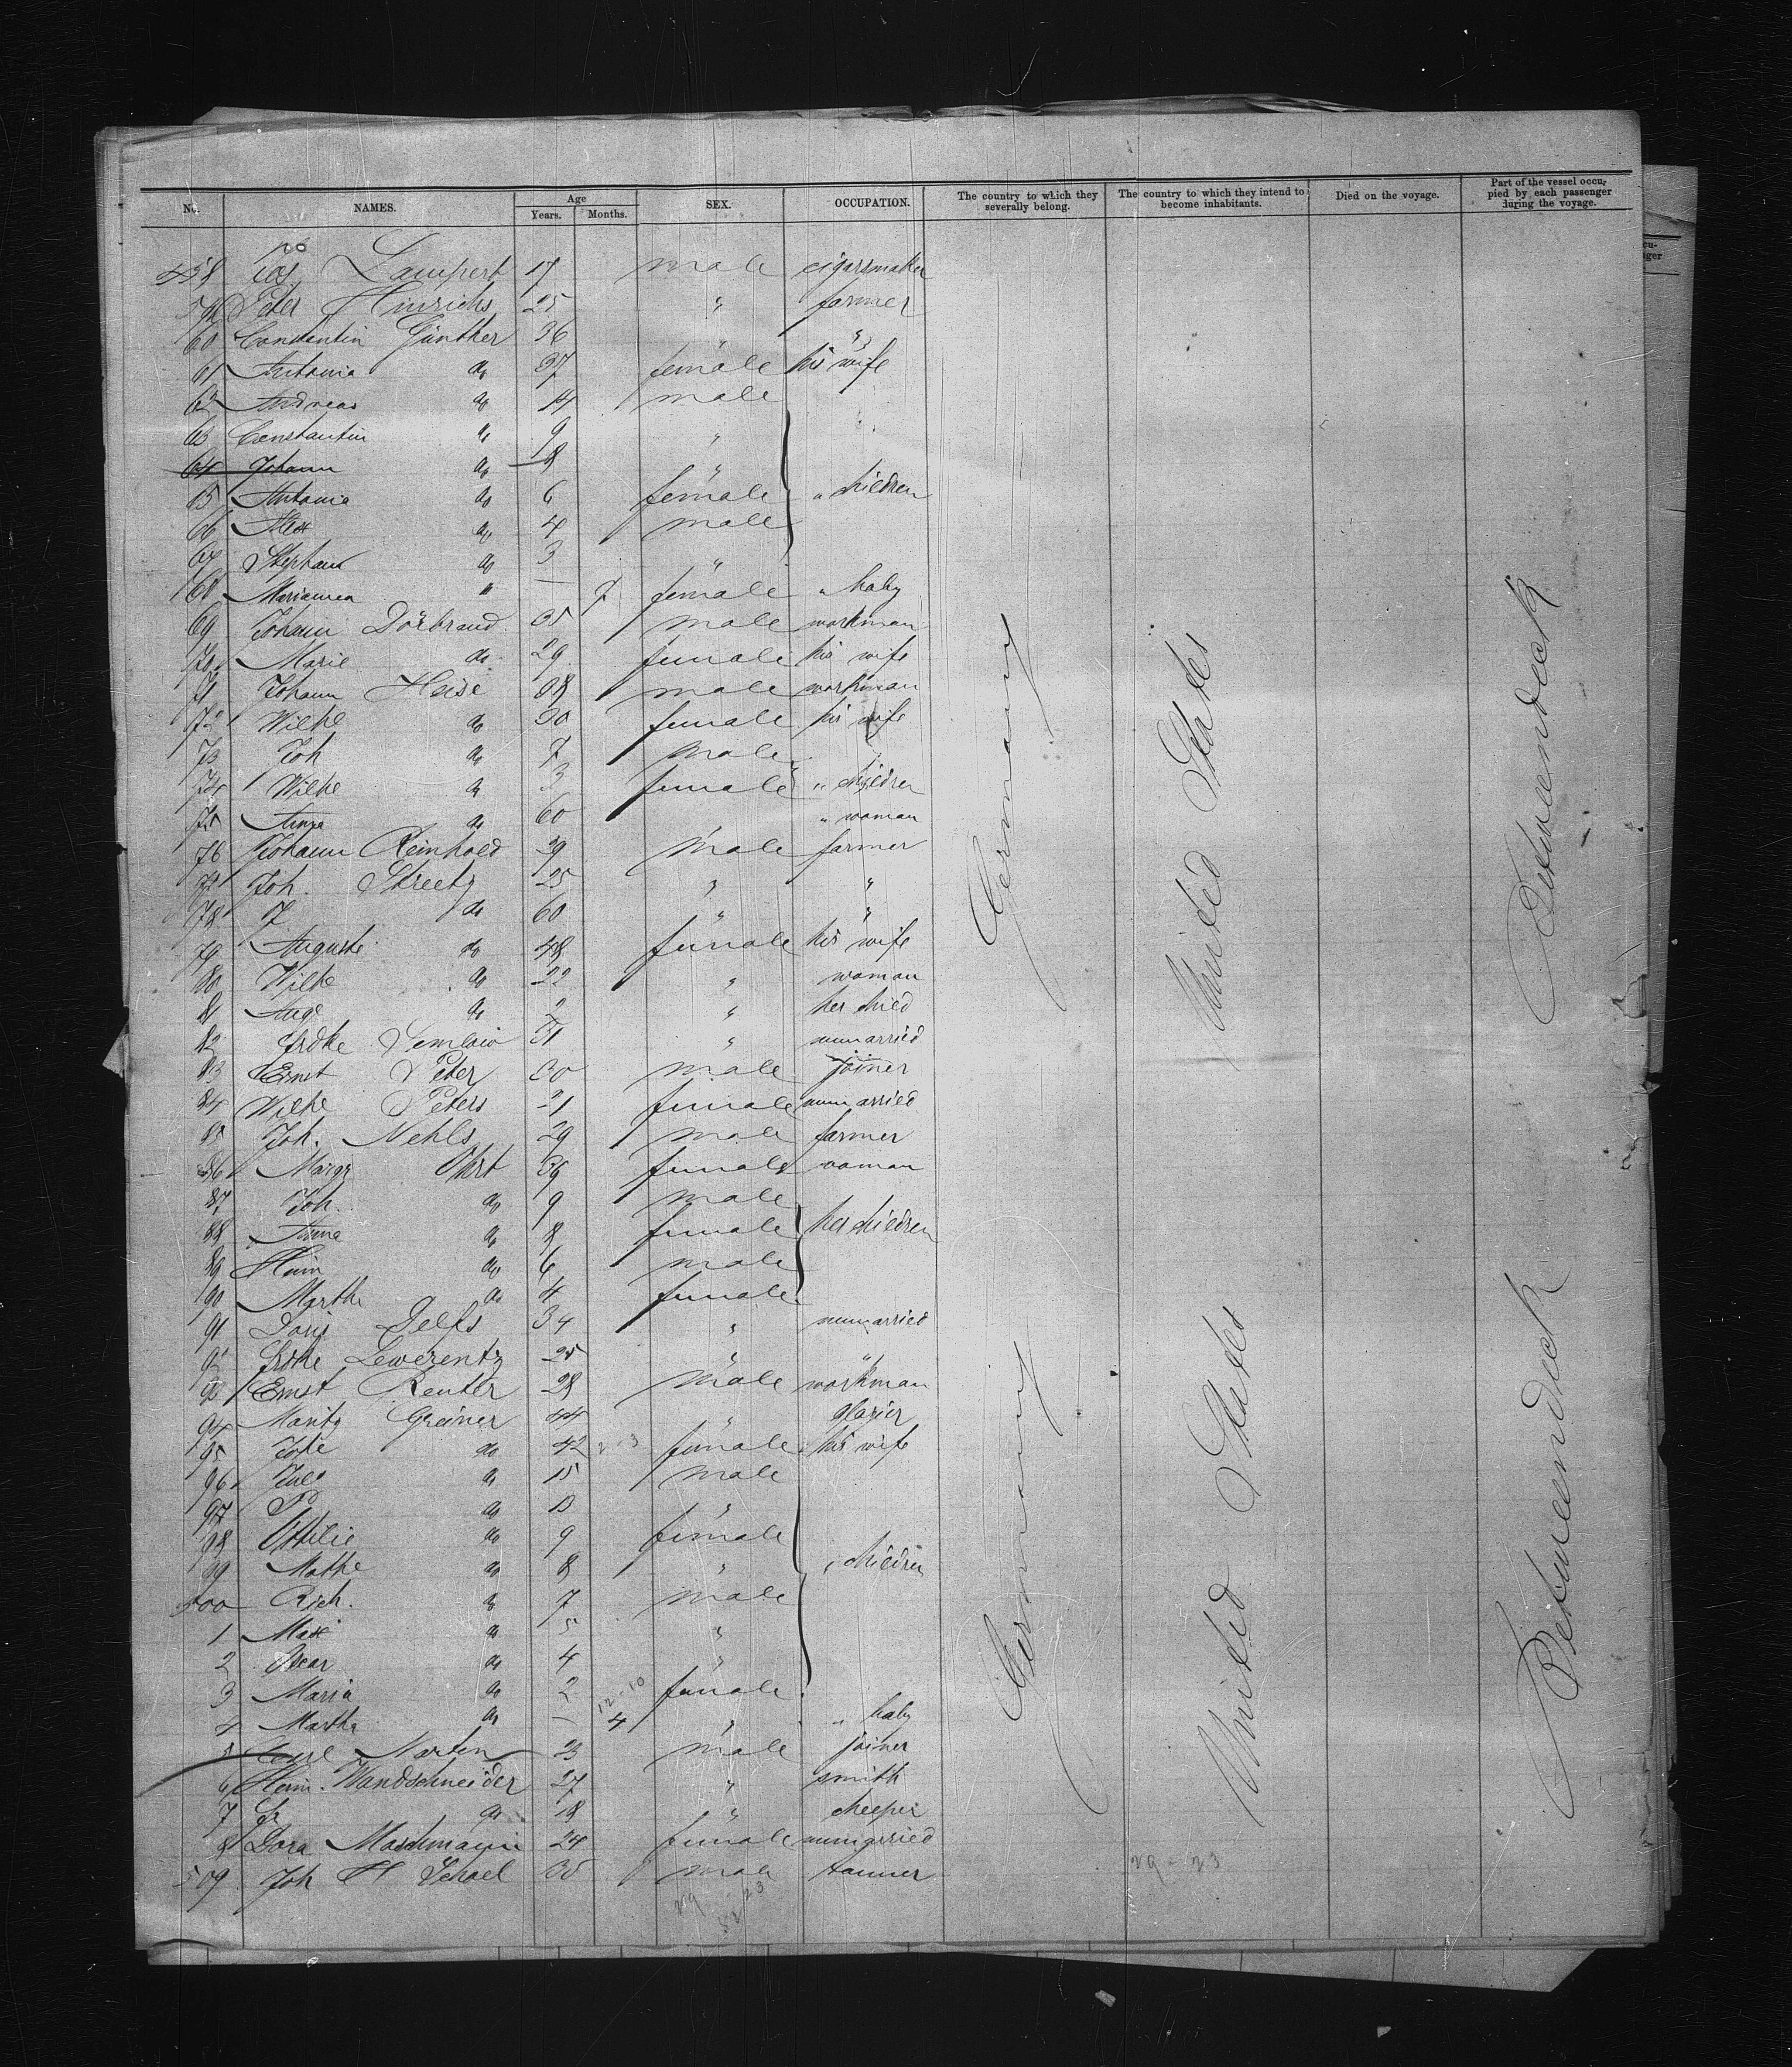 No. NAMES. Age Years. Months. SEX. OCCUPATION. The country to which they severally belong. The country to which they intend to become inhabitants. Died on the voyage. Part of the vessel occupied by each passenger during the voyage.
458 Jos. Lampert 17 male cigarsmaker
59 Peter Hinrichs 25 " farmer
60 Constantin Günther 36 " "
61 Antonia do 37 female his wife
62 Andreas do 14 male
63 Constantin do 9 "
64 Johann do 8 "
65 Antonia do 6 female " children
66 Alex do 4 male
67 Stephan do 3 "
68 Marianna " — 7 female " baby
69 Johann Dörbrand 35 male workman
70 Marie do 29 female his wife
71 Johann Heise 38 male workman
72 Wilhe do 30 female his wife
73 Joh do 7 male
74 Wilhe do 3 female " children
75 Anna do 60 " woman
76 Johann Reinhold 39 male farmer
77 Joh. Streetz 25 " "
78 J. do 60 " "
79 Auguste do 48 female his wife
80 Wilhe do 22 " woman
81 Auge do 2 " her child
82 Frdke Semlow 31 " unmarried
83 Ernst Peter 30 male joiner
84 Wilhe Peters 21 female unmarried
85 Joh. Nehls 29 male farmer
86 Marg Ohrt 39 female woman
87 Joh. do 9 male
88 Anna do 8 female her children
89 Heim do 6 male
90 Marthe do 4 female
91 Doris Delfs 34 " unmarried
92 Frdke Lewerentz 25 " "
93 Ernst Reuter 28 male workman
94 Moritz Greiner 44 " glazier
95 Johe do 42 female his wife
96 Jul do 15 male
97 do "
98 Ottilie do 9 female
99 Mathe do 8 " " children
500 Rich. do 7 male
1 Max do 5 "
2 Oscar do 4 "
3 Maria do 2 female
12-10
4 Martha do — 4 " " baby
5 Carl Narten 23 male joiner
6 Herm. Wandschneider 27 " smith
7 Fr do 18 "
8 Dora Maschmann 24 female unmarried
509 Joh H Schoel 35 male tanner
Germany United States Betweendeck
Germany United States Betweendeck
29-23